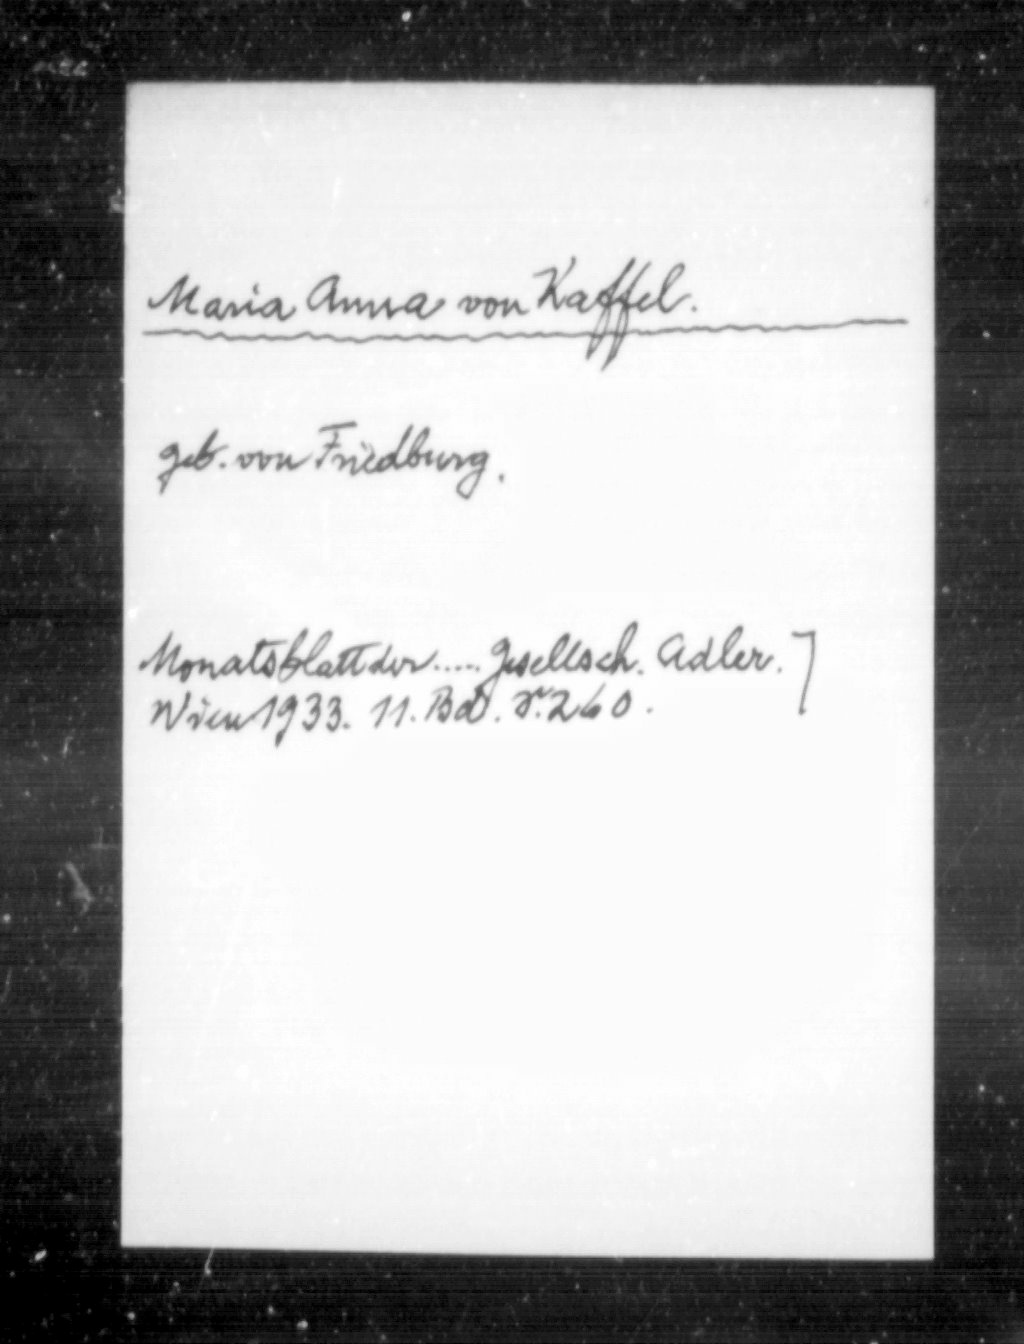 Maria Anna von Kaffel.
geb. von Friedburg.
Monatsblatt der ..... Gesellsch. Adler. ]
Wien 1933. 11. Bd. S. 260.